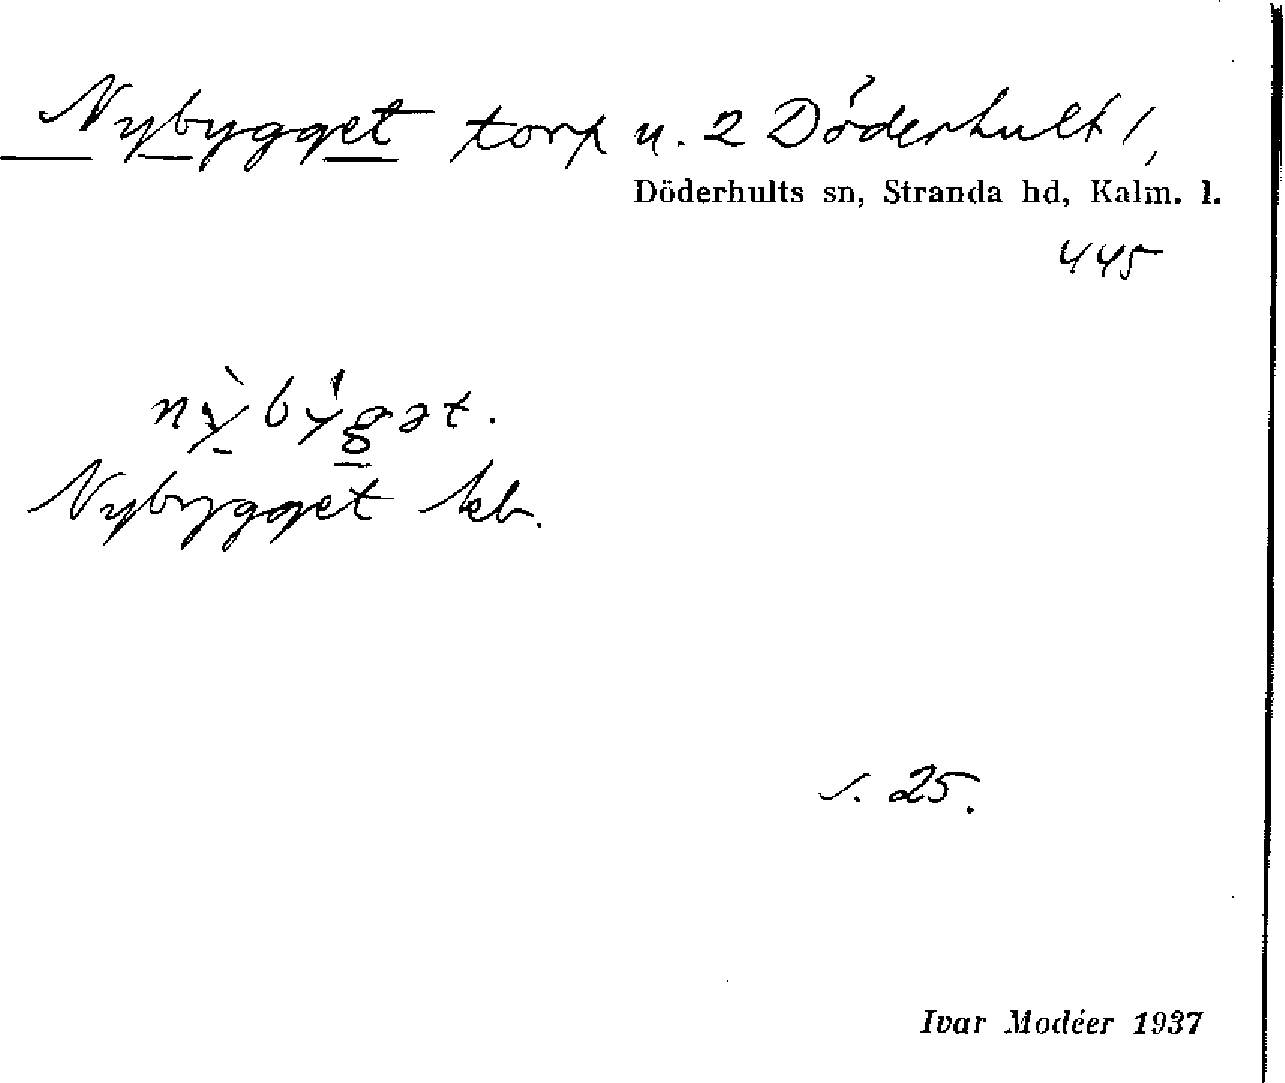 Nybygget torp u. 2 Döderhult 1,
Döderhults sn, Stranda hd, Kalm. l.
445
nỳbýgət.
Nybygget kb.
s. 25.
Ivar Modéer 1937